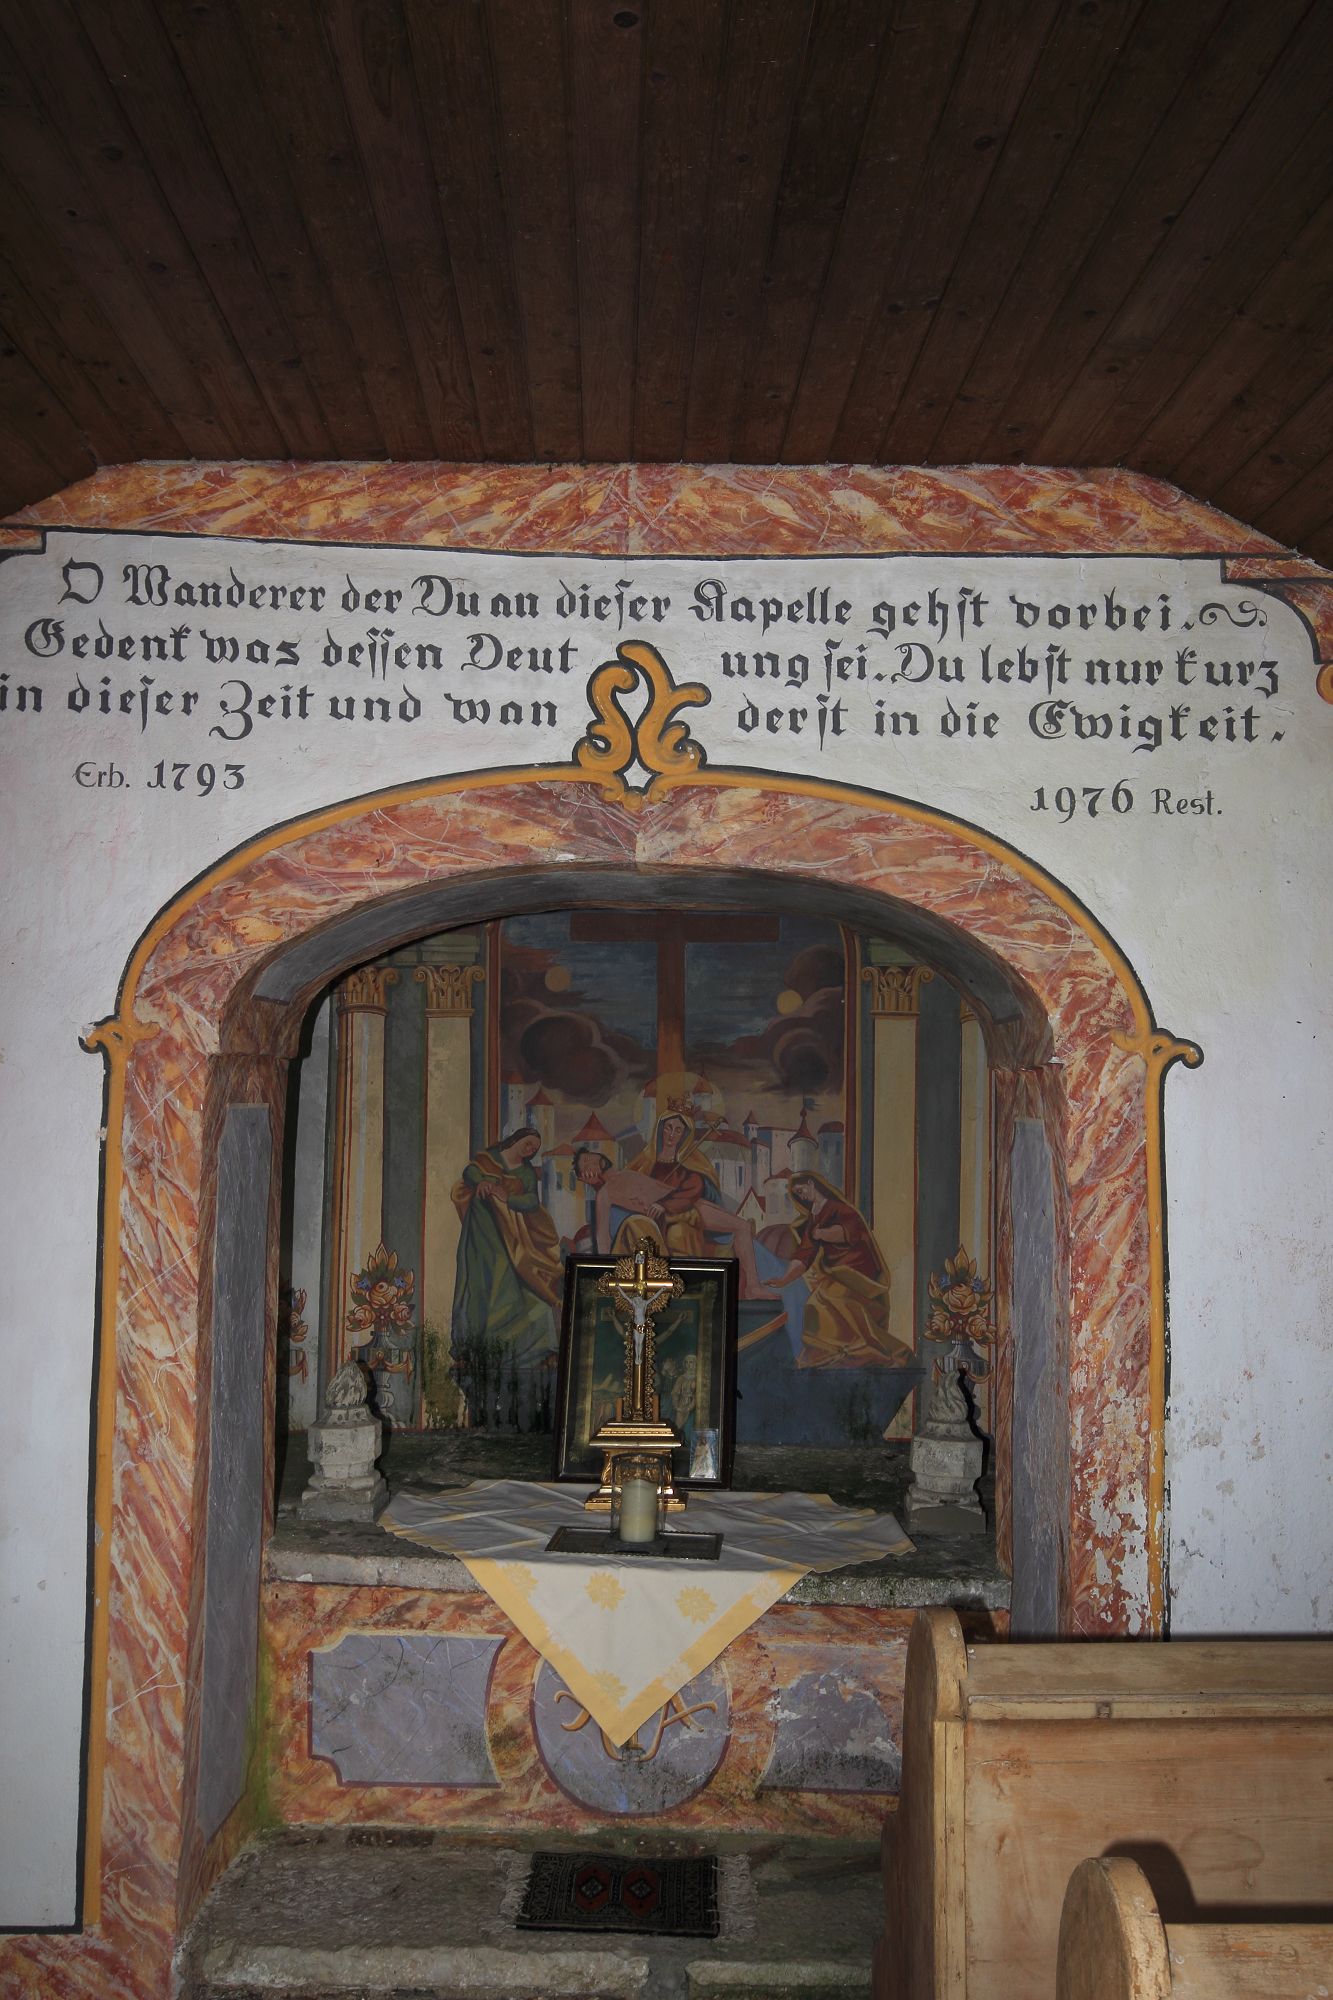 O Wanderer der Du an dieser Kapelle gehst vorbei.
Gedenk was dessen Deutung sei. Du lebst nur kurz
in dieser Zeit und wanderst in die Ewigkeit.
Erb. 1793 1976 Rest.